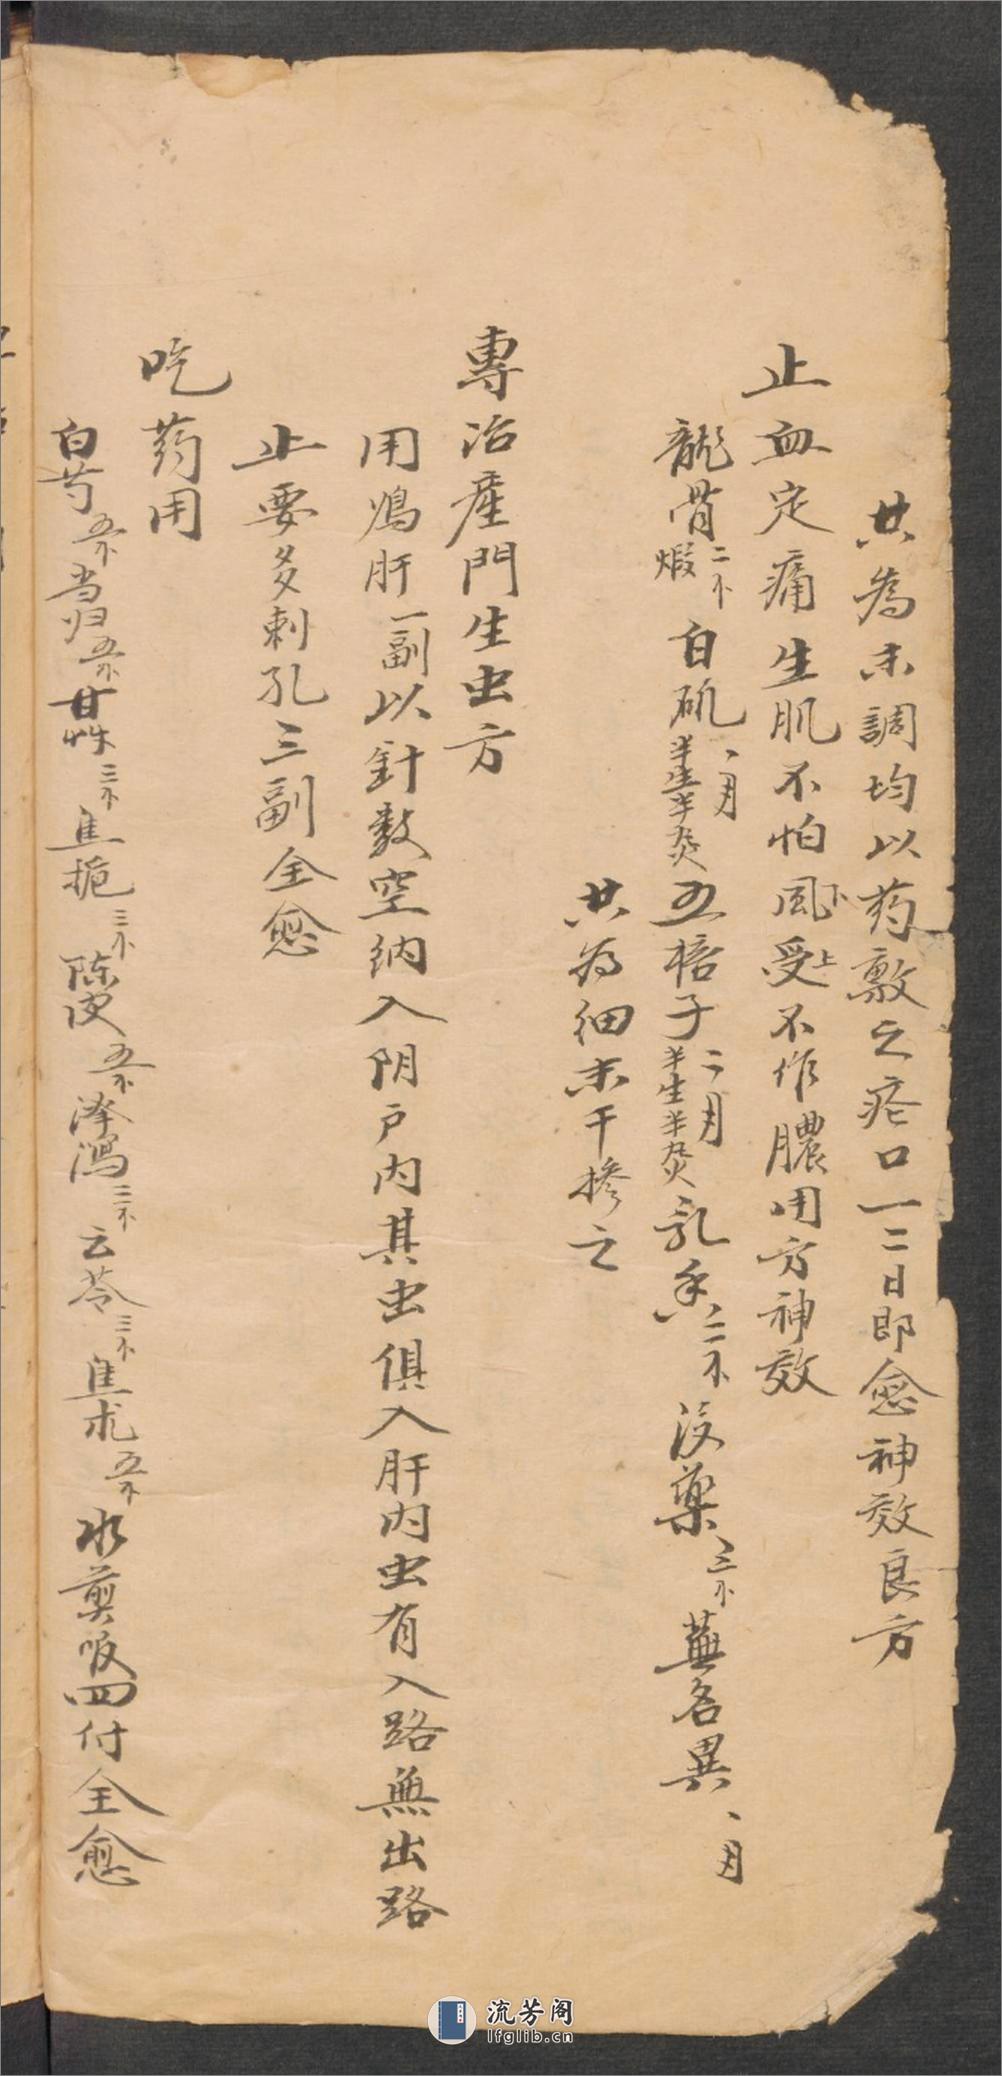 共為末調均以药敷之疮口一二日即愈神效良方
止血定痛生肌不怕風下受上不作膿用方神效
龍骨煅二个白矾半生半煅五棓子半生半煅乳香二个没藥三个蕪名異
共为细末干掺之
專治產門生虫方
用鳮肝一副以針数空纳入阴户内其虫俱入肝内虫有入路無出路
止要多刺孔三副全愈
吃药用
白芍五个当归五个甘草三个焦栀三个陈皮五个泽瀉三个云苓三个焦术五个水煎服四付全愈
流芳阁
lfglib.cn